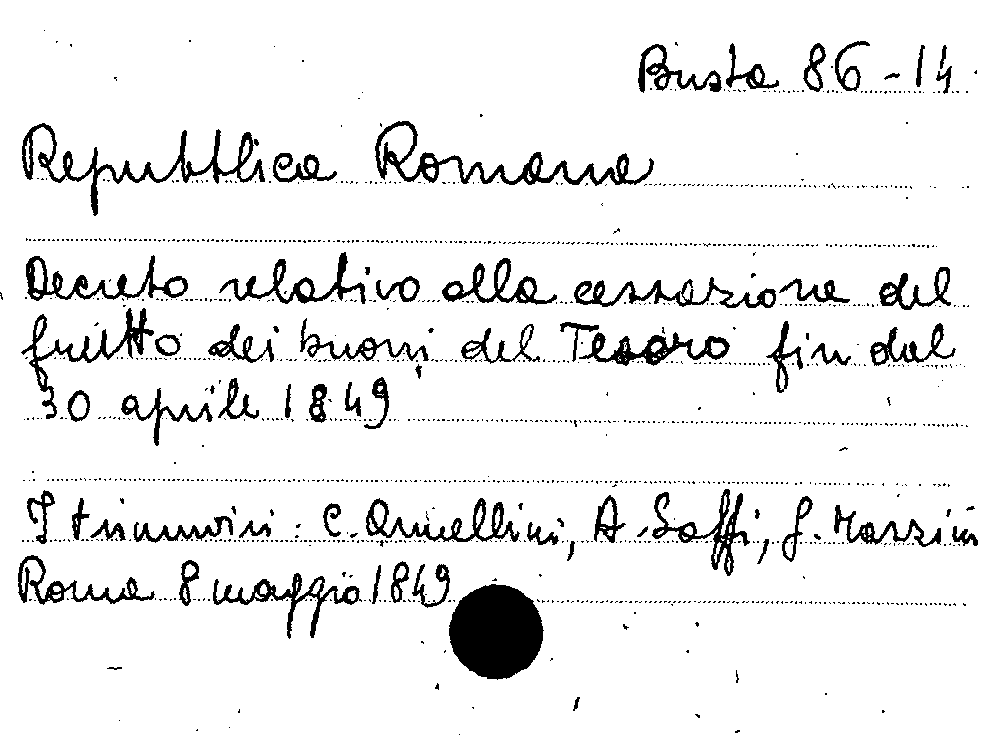 Busta 86-14
Repubblica Romana
Decreto relativo alla cessazione del
frutto dei buoni del Tesoro fin dal
30 aprile 1849
I triumviri: C. Armellini, A. Saffi, G. Mazzini
Roma 8 maggio 1849